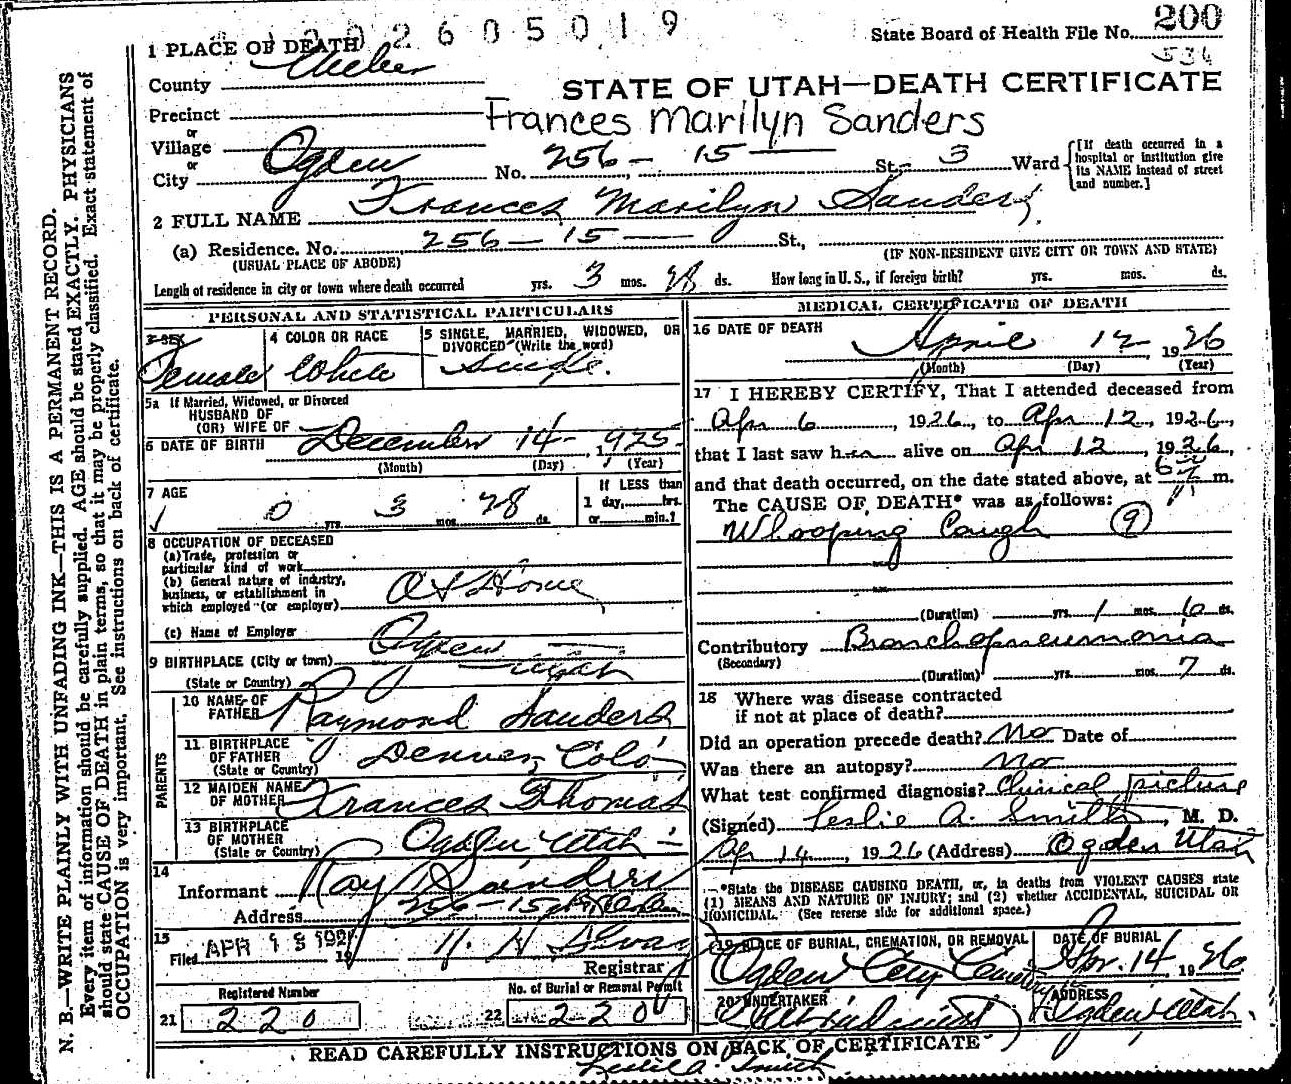 2605019
State Board of Health File No. 200
534
1 PLACE OF DEATH
County Weber
STATE OF UTAH—DEATH CERTIFICATE
Precinct
Frances Marilyn Sanders
or
Village
or
City Ogden No. 256-15 St. 3 Ward [If death occurred in a hospital or institution give its NAME instead of street and number.]
2 FULL NAME Frances Marilyn Sanders
(a) Residence. No. 256-15 St.,
(USUAL PLACE OF ABODE) (IF NON-RESIDENT GIVE CITY OR TOWN AND STATE)
Length of residence in city or town where death occurred yrs. 3 mos. 28 ds. How long in U. S., if foreign birth? yrs. mos. ds.
PERSONAL AND STATISTICAL PARTICULARS
3 SEX 4 COLOR OR RACE 5 SINGLE, MARRIED, WIDOWED, OR DIVORCED (Write the word)
Female White Single.
5a If Married, Widowed, or Divorced
HUSBAND OF
(OR) WIFE OF
6 DATE OF BIRTH December 14 - 1925
(Month) (Day) (Year)
7 AGE If LESS than
0 yrs. 3 mos. 28 ds. 1 day, hrs.
or min.?
8 OCCUPATION OF DECEASED
(a) Trade, profession or
particular kind of work
(b) General nature of industry,
business, or establishment in
which employed (or employer) At Home
(c) Name of Employer
9 BIRTHPLACE (City or town) Ogden
(State or Country) Utah
PARENTS
10 NAME OF FATHER Raymond Sanders
11 BIRTHPLACE OF FATHER (State or Country) Denver, Colo
12 MAIDEN NAME OF MOTHER Frances Thomas
13 BIRTHPLACE OF MOTHER (State or Country) Ogden Utah -
14
Informant Ray Sanders
Address 256-15
15
Filed APR 19
Registrar
Registered Number No. of Burial or Removal Permit
21 220 22 220
MEDICAL CERTIFICATE OF DEATH
16 DATE OF DEATH April 12 1926
(Month) (Day) (Year)
17 I HEREBY CERTIFY, That I attended deceased from
Apr 6, 1926, to Apr 12, 1926,
that I last saw h alive on Apr 12, 1926,
and that death occurred, on the date stated above, at m.
The CAUSE OF DEATH* was as follows:
Whooping Cough 9
(Duration) yrs. 1 mos. 6 ds.
Contributory Bronchopneumonia
(Secondary)
(Duration) yrs. mos. 7 ds.
18 Where was disease contracted
if not at place of death?
Did an operation precede death? No Date of
Was there an autopsy? No
What test confirmed diagnosis? Clinical picture
(Signed) Leslie A. Smith, M. D.
Apr 14, 1926 (Address) Ogden Utah
*State the DISEASE CAUSING DEATH, or, in deaths from VIOLENT CAUSES state
(1) MEANS AND NATURE OF INJURY; and (2) whether ACCIDENTAL, SUICIDAL OR
HOMICIDAL. (See reverse side for additional space.)
19 PLACE OF BURIAL, CREMATION, OR REMOVAL DATE OF BURIAL
Ogden City Cemetery Apr. 14 1926
20 UNDERTAKER ADDRESS
Ogden Utah.
READ CAREFULLY INSTRUCTIONS ON BACK OF CERTIFICATE
Leslie A. Smith
N. B.—WRITE PLAINLY WITH UNFADING INK—THIS IS A PERMANENT RECORD.
Every item of information should be carefully supplied. AGE should be stated EXACTLY. PHYSICIANS
should state CAUSE OF DEATH in plain terms, so that it may be properly classified. Exact statement of
OCCUPATION is very important. See instructions on back of certificate.